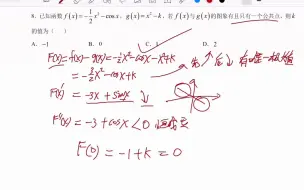 8. 已知函数 f(x)=-1/2x²-cosx, g(x)=x²-k, 若 f(x) 与 g(x) 的图象有且只有一个公共点, 则 k
的值为( )
A. -1 B. 0 C. 1 D. 2
F(x)=f(x)-g(x)=-½x²-cosx-x²+k
=-3/2x²-cosx+k
F'(x)=-3x+sinx
F''(x)=-3+cosx<0
F(0)=-1+k=0